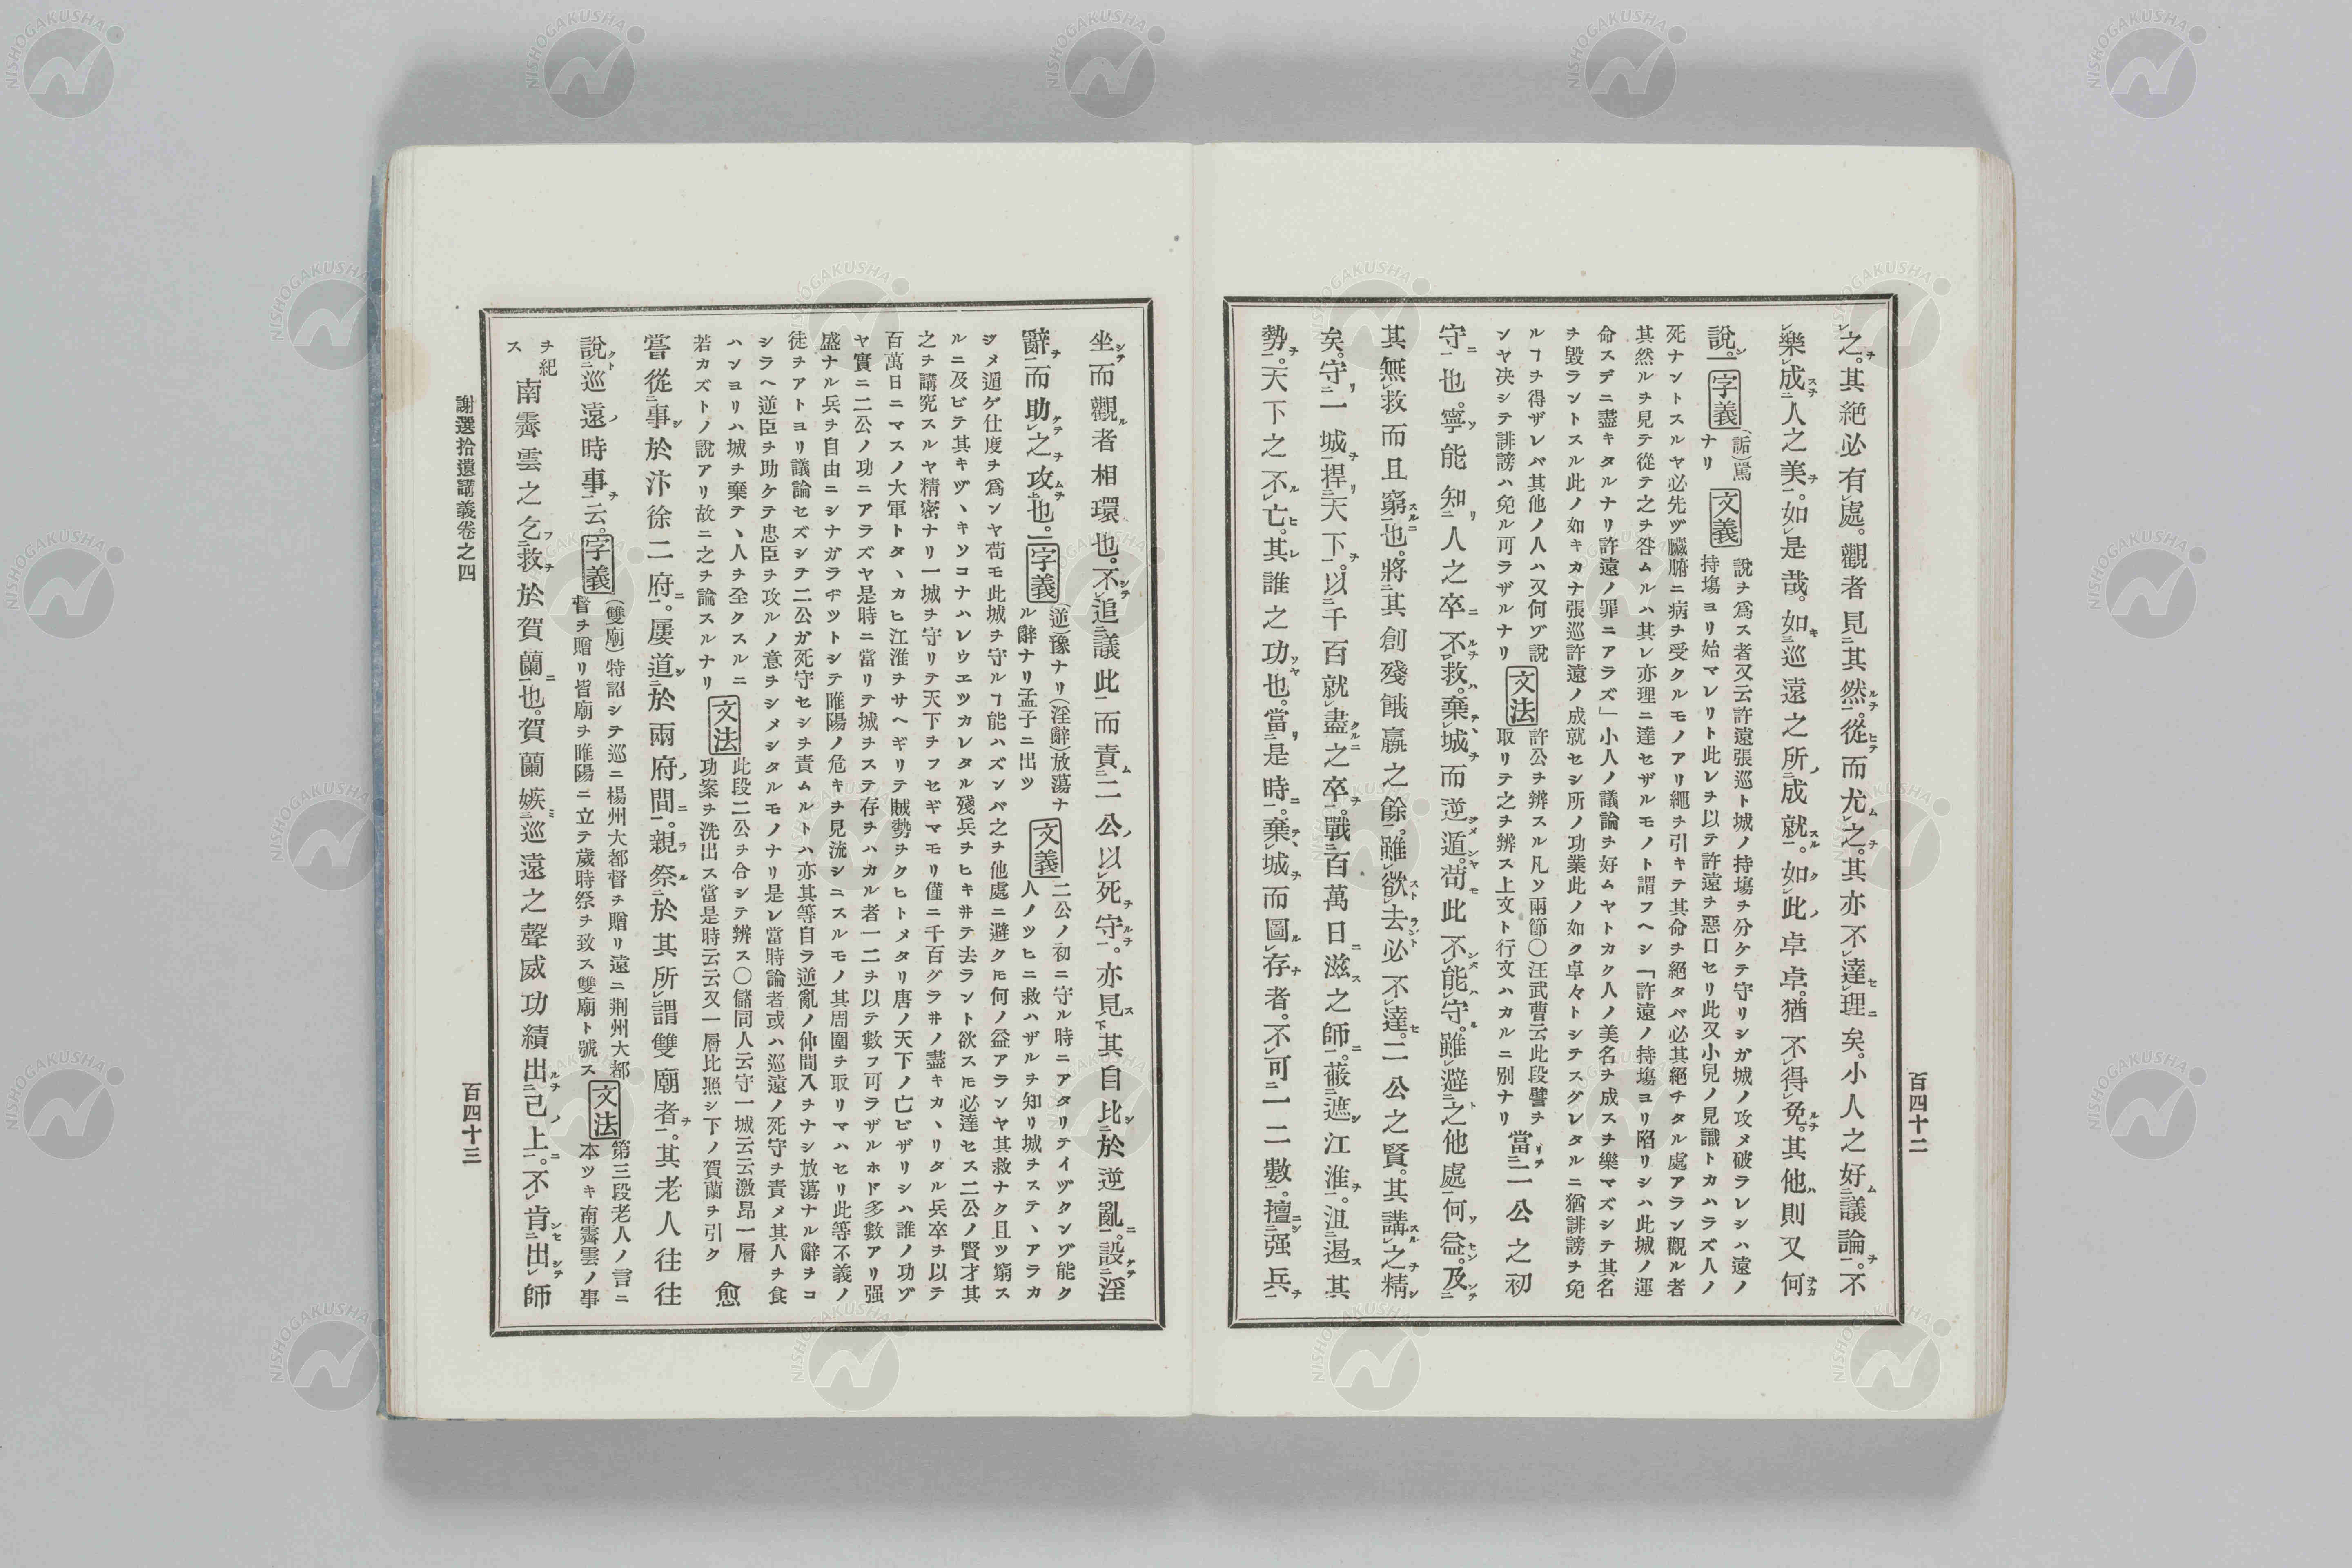 之。其絕必有處。觀者見其然。從而尤之。其亦不達理矣。小人之好議論。不
樂成人之美。如是哉。如巡遠之所成就。如此卓卓。猶不得免。其他則又何
說。字義(詬)罵ナリ 文義 說ヲ爲ス者又云許遠張巡ト城ノ持塲ヲ分ケテ守リシガ城ノ攻メ破ラレシハ遠ノ
持塲ヨリ始マレリト此レヲ以テ許遠ヲ惡口セリ此又小兒ノ見識トカハラズ人ノ
死ナントスルヤ必先ヅ臟腑ニ病ヲ受クルモノアリ繩ヲ引キテ其命ヲ絕タバ必其絕チタル處アラン觀ル者
其然ルヲ見テ從テ之ヲ咎ムルハ其レ亦理ニ達セザルモノト謂フヘシ「許遠ノ持塲ヨリ陷リシハ此城ノ運
命スデニ盡キタルナリ許遠ノ罪ニアラズ」小人ノ議論ヲ好ムヤトカク人ノ美名ヲ成スヲ樂マズシテ其名
ヲ毀ラントスル此ノ如キカナ張巡許遠ノ成就セシ所ノ功業此ノ如ク卓々トシテスグレタルニ猶誹謗ヲ免
ルヿヲ得ザレバ其他ノ人ハ又何ゾ說
ンヤ決シテ誹謗ハ免ル可ラザルナリ 文法 許公ヲ辨スル凡ソ兩節〇汪武曹云此段譬ヲ
取リテ之ヲ辨ス上文ト行文ハカルニ別ナリ 當二公之初
守也。寧能知人之卒不救。棄城而逆遁。苟此不能守。雖避之他處何益。及
其無救而且窮也。將其創殘餓羸之餘。雖欲去必不達。二公之賢。其講之精
矣。守一城捍天下。以千百就盡之卒。戰百萬日滋之師。蔽遮江淮。沮遏其
勢。天下之不亡。其誰之功也。當是時。棄城而圖存者。不可一二數。擅强兵
百四十二
坐而觀者相環也。不追議此而責二公以死守。亦見其自比於逆亂。設淫
辭而助之攻也。字義(逆)豫ナリ(淫辭)放蕩ナ
ル辭ナリ孟子ニ出ツ 文義 二公ノ初ニ守ル時ニアタリテイヅクンゾ能ク
人ノツヒニ救ハザルヲ知リ城ヲステヽアラカ
ジメ遁ゲ仕度ヲ爲ンヤ苟モ此城ヲ守ルヿ能ハズンバ之ヲ他處ニ避クトモ何ノ益アランヤ其救ナク且ツ窮ス
ルニ及ビテ其キヅヽキソコナハレウエツカレタル殘兵ヲヒキ井テ去ラント欲ストモ必達セス二公ノ賢才其
之ヲ講究スルヤ精密ナリ一城ヲ守リテ天下ヲフセギマモリ僅ニ千百グラ井ノ盡キカヽリタル兵卒ヲ以テ
百萬日ニマスノ大軍トタヽカヒ江淮ヲサヘギリテ賊勢ヲクヒトメタリ唐ノ天下ノ亡ビザリシハ誰ノ功ゾ
ヤ實ニ二公ノ功ニアラズヤ是時ニ當リテ城ヲステ存ヲハカル者一二ヲ以テ數フ可ラザルホド多數アリ强
盛ナル兵ヲ自由ニシナガラヂツトシテ睢陽ノ危キヲ見流シニスルモノ其周圍ヲ取リマハセリ此等不義ノ
徒ヲアトヨリ議論セズシテ二公ガ死守セシヲ責ムルトハ亦其等自ラ逆亂ノ仲間入ヲナシ放蕩ナル辭ヲコ
シラヘ逆臣ヲ助ケテ忠臣ヲ攻ルノ意ヲシメシタルモノナリ是レ當時論者或ハ巡遠ノ死守ヲ責メ其人ヲ食
ハンヨリハ城ヲ棄テヽ人ヲ全クスルニ
若カズトノ說アリ故ニ之ヲ論スルナリ 文法 此段二公ヲ合シテ辨ス〇儲同人云守一城云云激昂一層
功案ヲ洗出ス當是時云云又一層比照シ下ノ賀蘭ヲ引ク 愈
嘗從事於汴徐二府。屢道於兩府間。親祭於其所謂雙廟者。其老人往往
說巡遠時事云。字義(雙廟)特詔シテ巡ニ楊州大都督ヲ贈リ遠ニ荆州大都
督ヲ贈リ皆廟ヲ睢陽ニ立テ歲時祭ヲ致ス雙廟ト號ス 文法 第三段老人ノ言ニ
本ツキ南霽雲ノ事
ヲ紀
ス 南霽雲之乞救於賀蘭也。賀蘭嫉巡遠之聲威功績出己上。不肯出師
謝選拾遺講義卷之四
百四十三